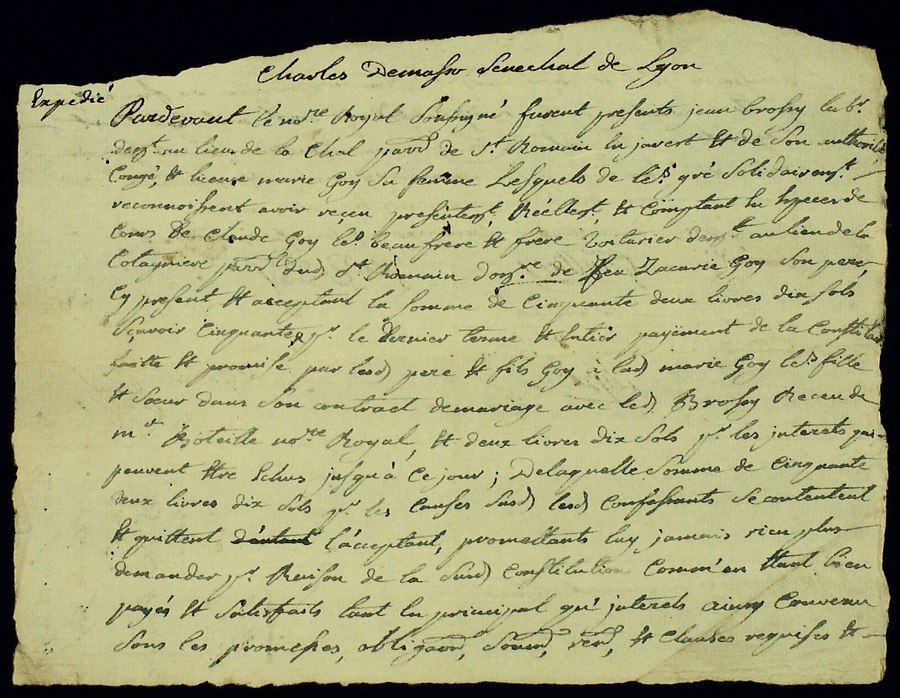 Charles Demasso Senechal de Lyon
Expedié
Pardevant le no.re Royal Soussigné furent présents jean brossy lab.r
dem.t au lieu de la Chal parr.e de S.t Romain en jarest & de Son authorité
Congé, & licence marie Goy Sa femme Lesquels de le.s gré Solidairem.t
reconnoissent avoir reçeu présentem.t, Réellem.t, & Comptant en especes de
Cours De Claude Goy le.s beau frere & frere Voiturier dem.t au lieu de la
Cotayniere parr.e dud S.t Romain don.re de feu Zacarie Goy Son pere,
Cy present & acceptant la Somme de Cinquante deux livres dix Sols
Sçavoir Cinquante p.r le Dernier terme & Entier payëment de la Constitu
faitte & promise par lesd pere & fils Goy à lad marie Goy le.s fille
& Sœur dans Son contract demariage avec led Brossy Receu de
m.e Boteille no.re Royal, & deux livres dix Sols p.r les interets qui
peuvent Etre Echus jusqu'à Ce jour; Delaquelle Somme de Cinquante
deux livres dix Sols p.r les Causes Susd lesd Confessants Se contentent
& quittent l'acceptant, promettants luy jamais rien plus
demander p.r Raison de la Susd Constitution Comm'en Etant bien
payés & Satisfaits tant en principal qu'interets ainsy Convenu
Sous les promesses, obligaon, Soum, ren, & Clauses requises &